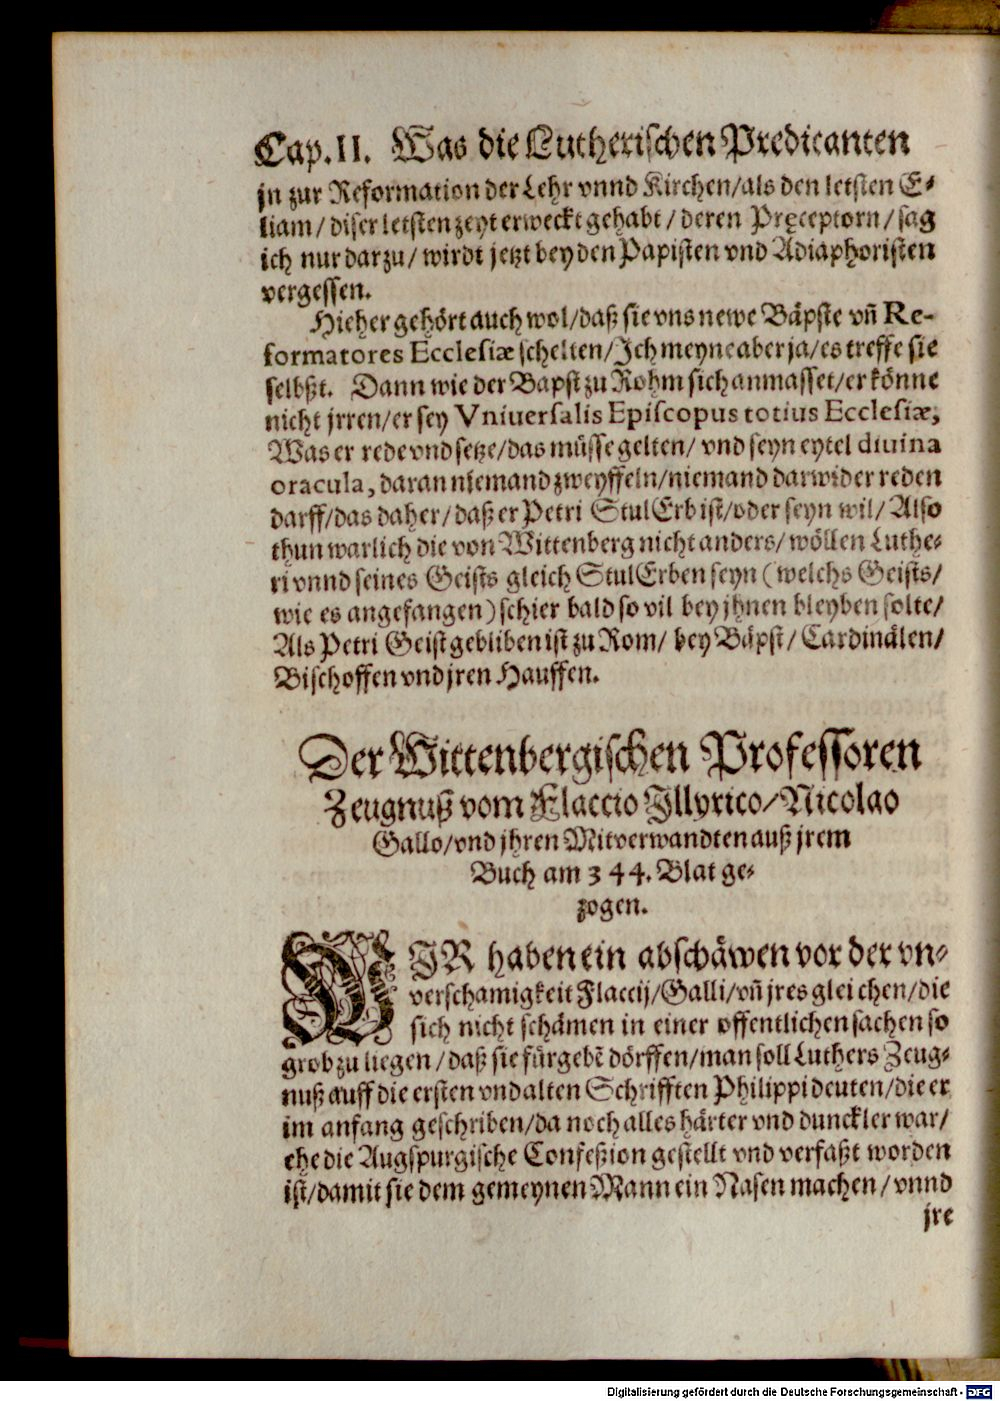 Cap. II. Was die Lutherischen Predicanten
jn zur Reformation der Lehr vnnd Kirchen/als den letsten E-
liam/ diser letsten zeyt erweckt gehabt/ deren Præceptorn/ sag
ich nur darzu/ wirdt jetzt bey den Papisten vnd Adiaphoristen
vergessen.
Hieher gehört auch wol/daß sie vns newe Bäpste vñ Re-
formatores Ecclesiæ schelten/Ich meyne aber ja/es treffe sie
selbßt. Dann wie der Bapst zu Rohm sich anmasset/er könne
nicht jrren/er sey Vniuersalis Episcopus totius Ecclesiæ,
Was er rede vnd setze/das müsse gelten/ vnd seyn eytel diuina
oracula, daran niemand zweyffeln/niemand darwider reden
darff/das daher/daß er Petri Stul Erb ist/oder seyn wil/ Also
thun warlich die von Wittenberg nicht anders/ wöllen Luthe-
ri vnnd seines Geists gleich Stul Erben seyn (welchs Geists/
wie es angefangen) schier bald so vil bey jhnen bleyben solte/
Als Petri Geist gebliben ist zu Rom/ bey Bäpst/ Cardinälen/
Bischoffen vnd jren Hauffen.
Der Wittenbergischen Professoren
Zeugnuß vom Flaccio Illyrico/Nicolao
Gallo/vnd jhren Mitverwandten auß jrem
Buch am 344. Blat ge-
zogen.
WIR haben ein abschäwen vor der vn-
verschamigkeit Flaccij/Galli/vñ jres gleichen/die
sich nicht schämen in einer offentlichen sachen so
grob zu liegen/daß sie fürgebẽ dörffen/man soll Luthers Zeug-
nuß auff die ersten vnd alten Schrifften Philippi deuten/die er
im anfang geschriben/da noch alles härter vnd dunckler war/
ehe die Augspurgische Confeßion gestellt vnd verfaßt worden
ist/damit sie dem gemeynen Mann ein Nasen machen/ vnnd
jre
Digitalisierung gefördert durch die Deutsche Forschungsgemeinschaft - DFG